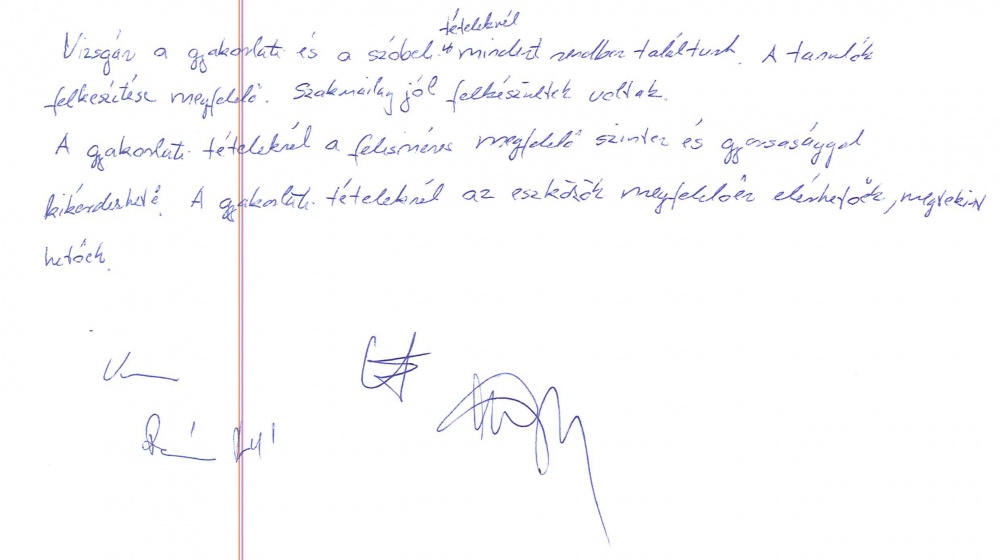 tételeknél
Vizsgán a gyakorlati és a szóbeli mindent rendben találtunk. A tanulók
felkészítése megfelelő. Szakmailag jól felkészültek voltak.
A gyakorlati tételeknél a felismerés megfelelő szinten és gyorsasággal
kikérdezhető. A gyakorlati tételeknél az eszközök megfelelően elérhetőek, megtekint
hetőek.